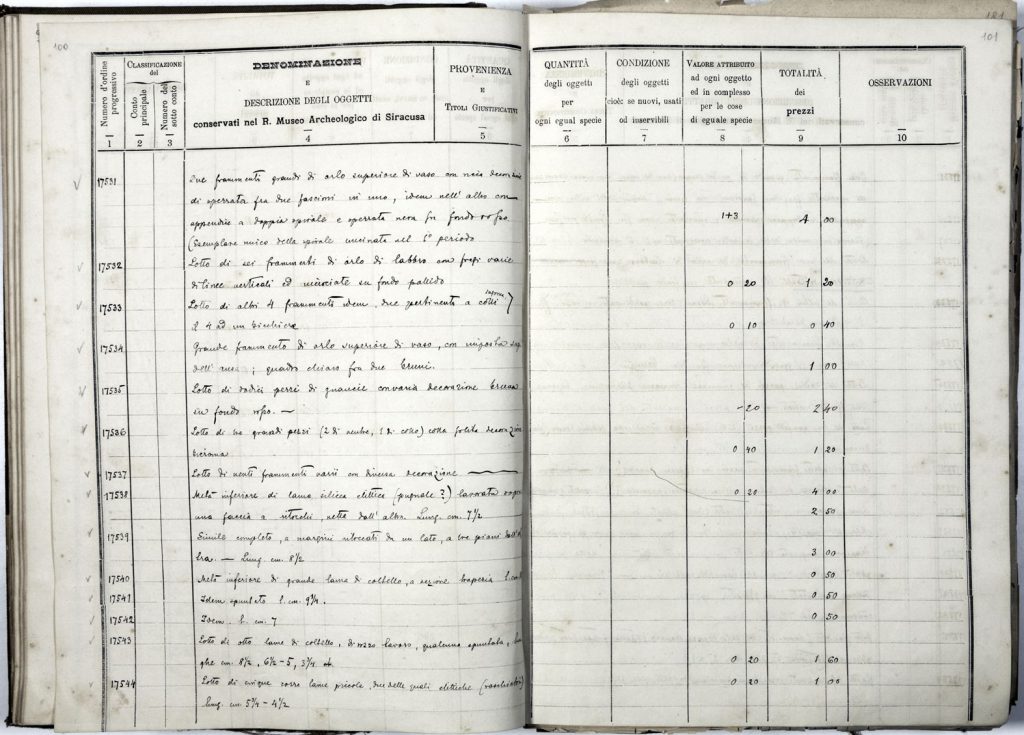 100
101
Numero d'ordine progressivo
CLASSIFICAZIONE
del
Conto principale
Numero del sotto conto
DENOMINAZIONE
E
DESCRIZIONE DEGLI OGGETTI
conservati nel R. Museo Archeologico di Siracusa
PROVENIENZA
E
TITOLI GIUSTIFICATIVI
QUANTITÀ
degli oggetti
per
ogni egual specie
CONDIZIONE
degli oggetti
cioè: se nuovi, usati
od inservibili
VALORE ATTRIBUITO
ad ogni oggetto
ed in complesso
per le cose
di eguale specie
TOTALITÀ
dei
prezzi
OSSERVAZIONI
1 2 3 4 5 6 7 8 9 10
17531 Due frammenti grandi di orlo superiore di vaso con
di operrata fra due fascioni in uno, idem nell'altro con
appendice a doppia spirale e operrata nera su fondo rosso 1+3 4 00
(Esemplare unico della spirale uncinata nel 1° periodo
17532 Lotto di sei frammenti di orlo di labbro con fregi varii
di linee verticali ed incrociate su fondo pallido 0 20 1 20
17533 Lotto di altri 4 frammenti idem, due pertinenti a colli
2 4 ad un bicchiere 0 10 0 40
17534 Grande frammento di orlo superiore di vaso, con
dell'ansa; quadro chiaro fra due bruni. 1 00
17535 Lotto di dodici pezzi di guancie con varia decorazione bruna
su fondo rosso. — - 20 2 40
17536 Lotto di tre grandi pezzi (2 di ventre, 1 di collo) colla solita decorazione
bicroma 0 40 1 20
17537 Lotto di venti frammenti varii con diversa decorazione 0 20 4 00
17538 Metà inferiore di lama silicea ellittica (pugnale?) lavorata sopra
una faccia a ritocchi, netta dall'altra. Lung. cm. 7 1/2 2 50
17539 Simile completo, a margini ritoccati da un lato, a tre piani dall'al
tra. — Lung. cm. 8 1/2 3 00
17540 Metà inferiore di grande lama di coltello, a sezione trapezia 0 50
17541 Idem spuntato l. cm. 9 3/4. 0 50
17542 Idem. l. cm. 7 0 50
17543 Lotto di otto lame di coltello, di rozzo lavoro, qualcuna spuntata, lun
ghe cm. 8 1/2, 6 1/2 - 5, 3 3/4 0 20 1 60
17544 Lotto di cinque corse lame piccole, due delle quali ellittiche (raschiatoi) 0 20 1 00
lung. cm 5 3/4 - 4 1/2